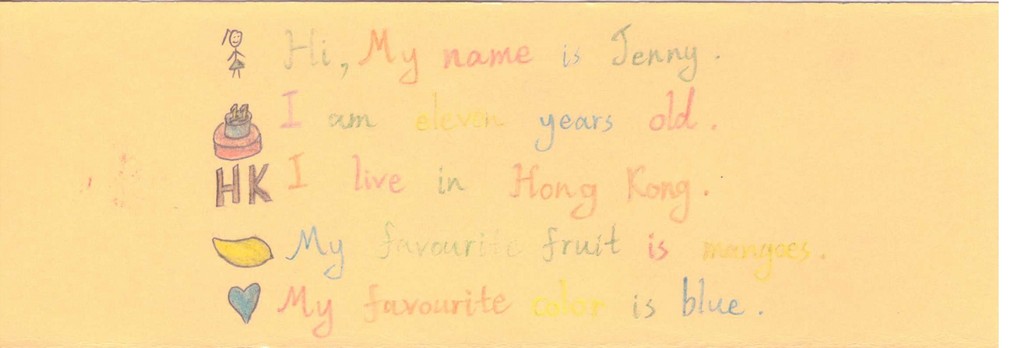 Hi, My name is Jenny.
I am eleven years old.
HK I live in Hong Kong.
My favourite fruit is mangoes.
My favourite color is blue.